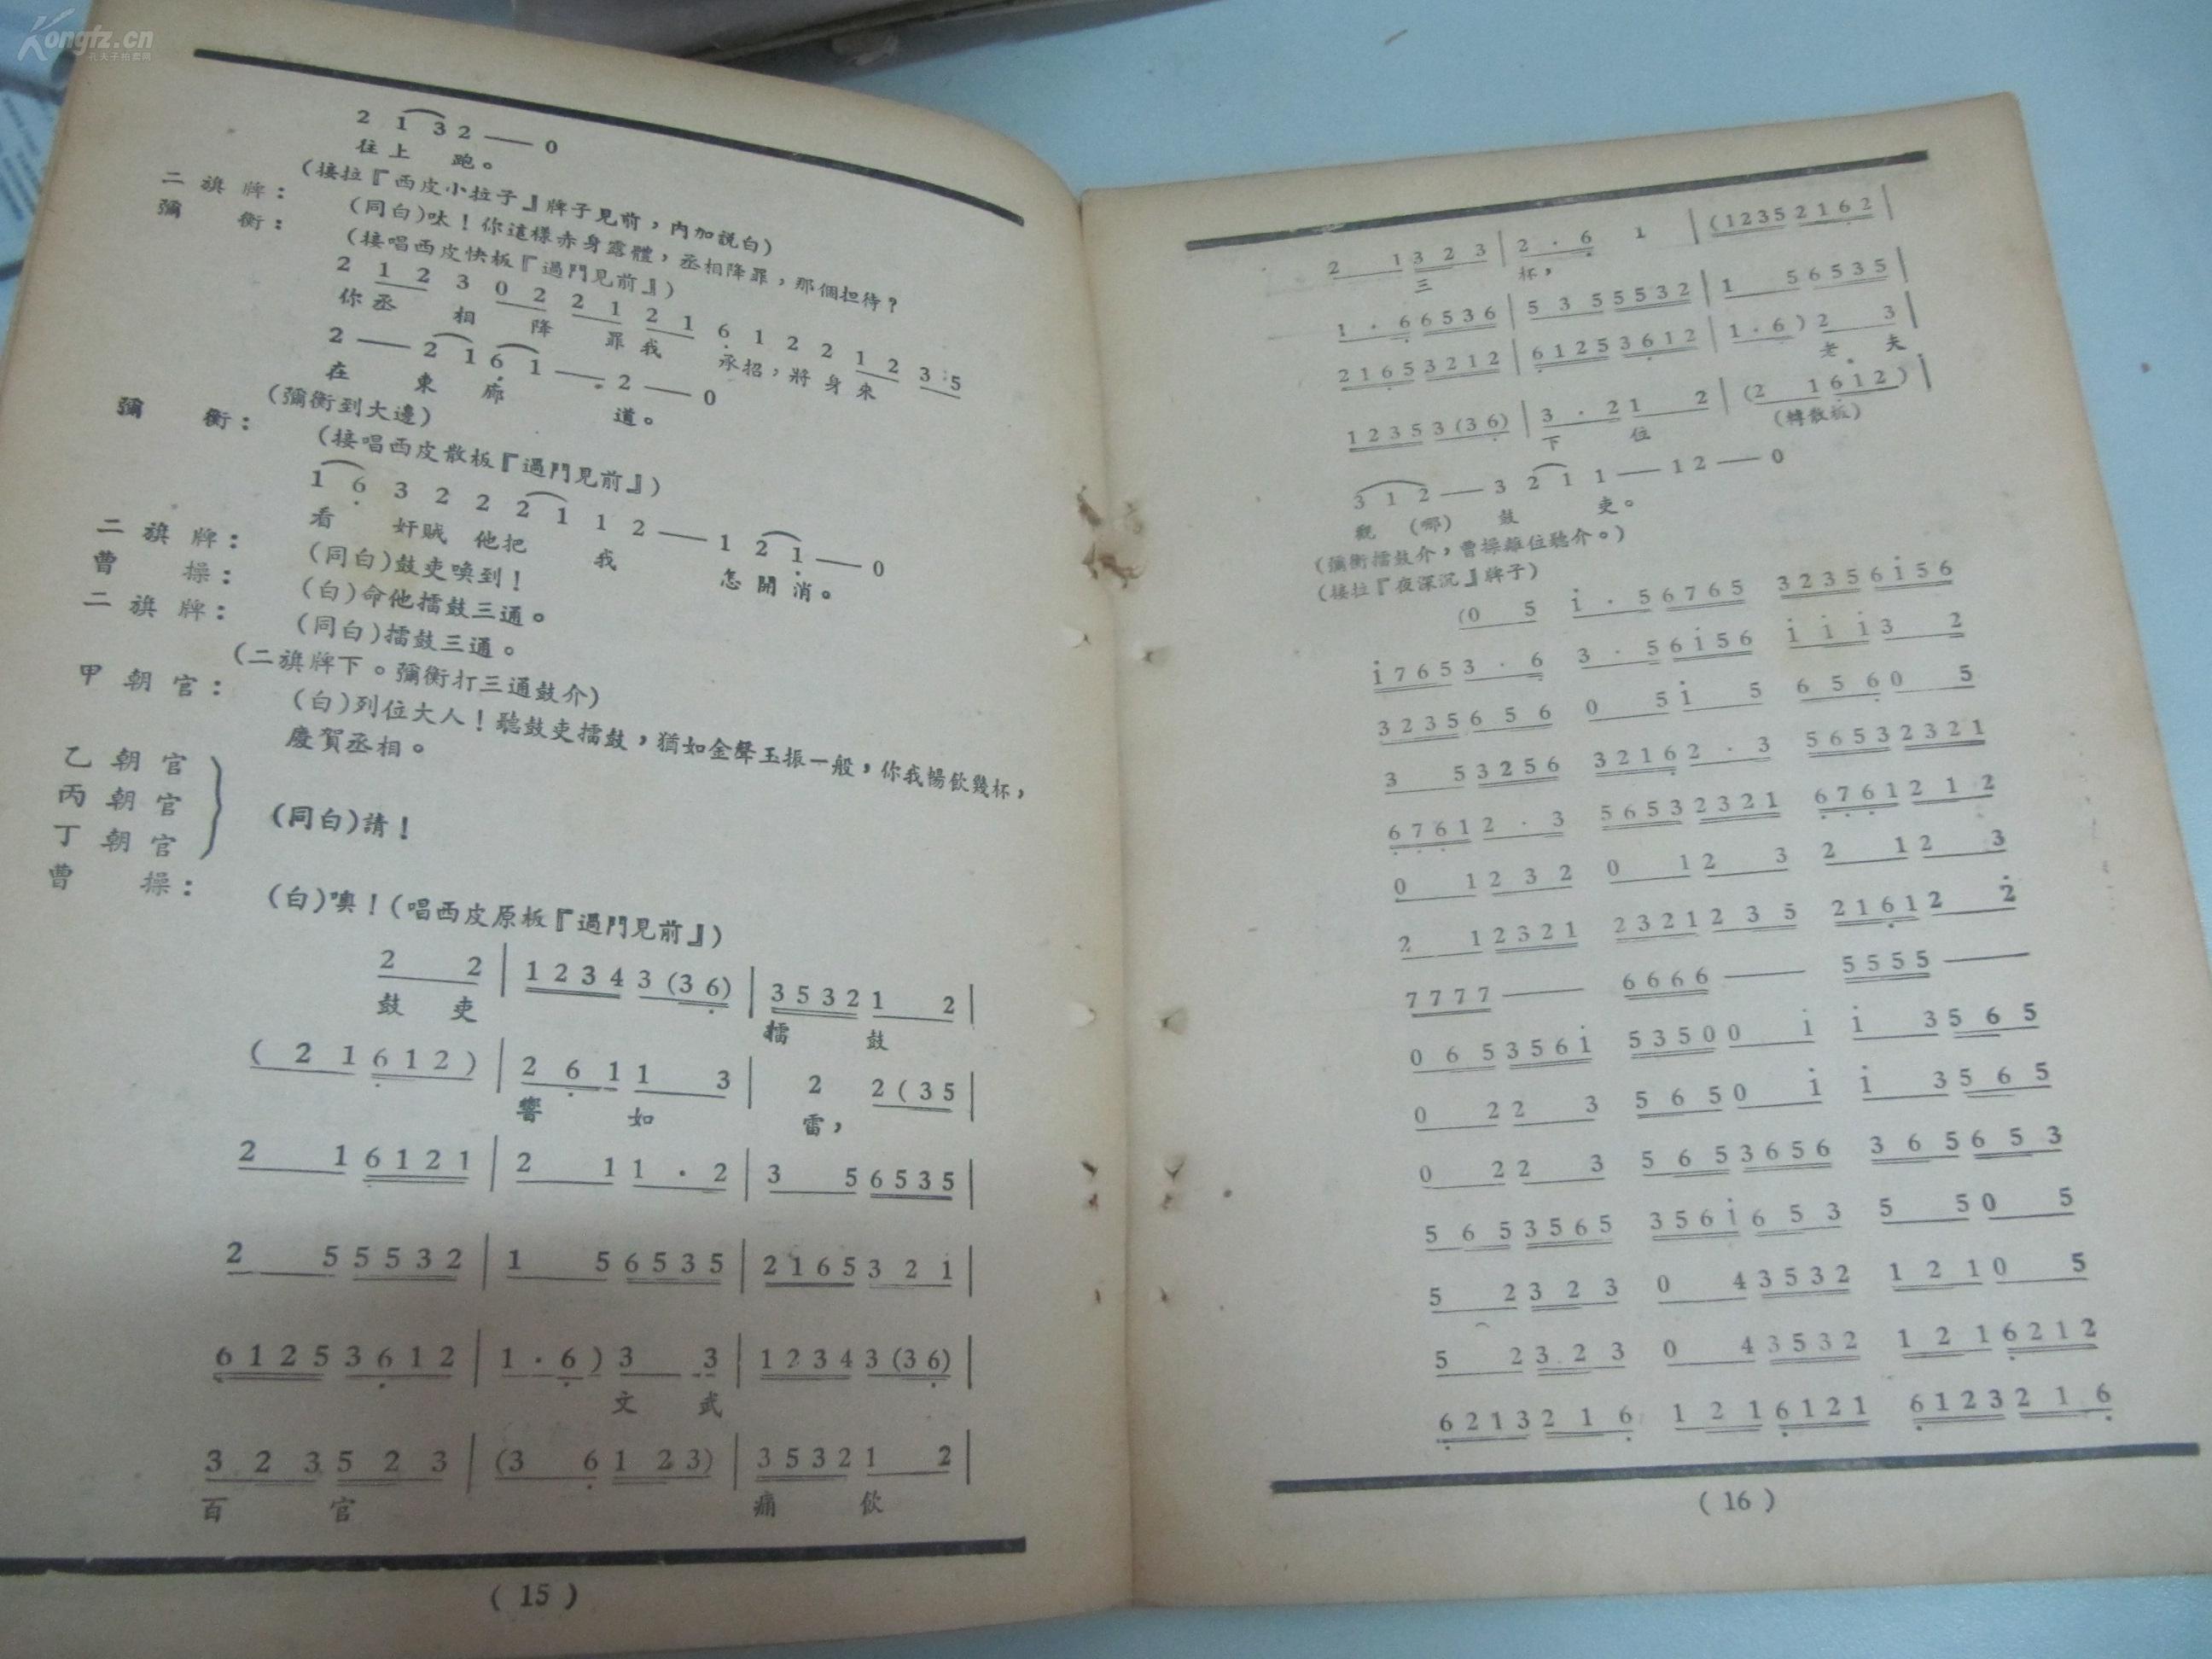 Kongfz.cn
孔夫子拍卖网
2 1 3 2 — 0
往上 跑。
(接拉『西皮小拉子』牌子見前，內加説白)
二旗牌： (同白)呔！你這樣赤身露體，丞相降罪，那個担待？
彌 衡： (接唱西皮快板『過門見前』)
2 1 2 3 0 2 2 1 2 1 6 1 2 2 1 2 3 5
你丞 相 降 罪我 承招，將身來
2 — 2 1 6 1 — 2 — 0
在 東 廊 道。
(彌衡到大邊)
彌 衡： (接唱西皮散板『過門見前』)
1 6 3 2 2 2 1 1 2 — 1 2 1 — 0
看 奸賊 他把 我 怎開消。
二旗牌： (同白)鼓吏喚到！
曹 操： (白)命他擂鼓三通。
二旗牌： (同白)擂鼓三通。
(二旗牌下。彌衡打三通鼓介)
甲朝官： (白)列位大人！聽鼓吏擂鼓，猶如金聲玉振一般，你我暢飲幾杯，
慶賀丞相。
乙朝官
丙朝官 (同白)請！
丁朝官
曹 操： (白)噢！(唱西皮原板『過門見前』)
2 2 | 1 2 3 4 3 (3 6) | 3 5 3 2 1 2 |
鼓 吏 擂 鼓
( 2 1 6 1 2 ) | 2 6 1 1 3 | 2 2 ( 3 5 |
響 如 雷，
2 1 6 1 2 1 | 2 1 1 . 2 | 3 5 6 5 3 5 |
2 5 5 5 3 2 | 1 5 6 5 3 5 | 2 1 6 5 3 2 1 |
6 1 2 5 3 6 1 2 | 1 . 6 ) 3 3 | 1 2 3 4 3 (3 6) |
文 武
3 2 3 5 2 3 | (3 6 1 2 3) | 3 5 3 2 1 2 |
百 官 痛 飲
( 15 )
2 1 3 2 3 | 2 . 6 1 | (1 2 3 5 2 1 6 2 |
三 杯，
1 . 6 6 5 3 6 | 5 3 5 5 5 3 2 | 1 5 6 5 3 5 |
2 1 6 5 3 2 1 2 | 6 1 2 5 3 6 1 2 | 1 . 6 ) 2 3 |
老 夫
1 2 3 5 3 (3 6) | 3 . 2 1 2 | (2 1 6 1 2 ) |
下 位 (轉散板)
3 1 2 — 3 2 1 1 — 1 2 — 0
觀 (哪) 鼓 吏。
(彌衡擂鼓介，曹操離位聽介。)
(接拉『夜深沉』牌子)
(0 5 i . 5 6 7 6 5 3 2 3 5 6 i 5 6
i 7 6 5 3 . 6 3 . 5 6 i 5 6 i i i 3 2
3 2 3 5 6 5 6 0 5 i 5 6 5 6 0 5
3 5 3 2 5 6 3 2 1 6 2 . 3 5 6 5 3 2 3 2 1
6 7 6 1 2 . 3 5 6 5 3 2 3 2 1 6 7 6 1 2 1 2
0 1 2 3 2 0 1 2 3 2 1 2 3
2 1 2 3 2 1 2 3 2 1 2 3 5 2 1 6 1 2 2
7 7 7 7 — 6 6 6 6 — 5 5 5 5 —
0 6 5 3 5 6 i 5 3 5 0 0 i i 3 5 6 5
0 2 2 3 5 6 5 0 i i 3 5 6 5
0 2 2 3 5 6 5 3 6 5 6 3 6 5 6 5 3
5 6 5 3 5 6 5 3 5 6 i 6 5 3 5 5 0 5
5 2 3 2 3 0 4 3 5 3 2 1 2 1 0 5
5 2 3 2 3 0 4 3 5 3 2 1 2 1 6 2 1 2
6 2 1 3 2 1 6 1 2 1 6 1 2 1 6 1 2 3 2 1 6
( 16 )